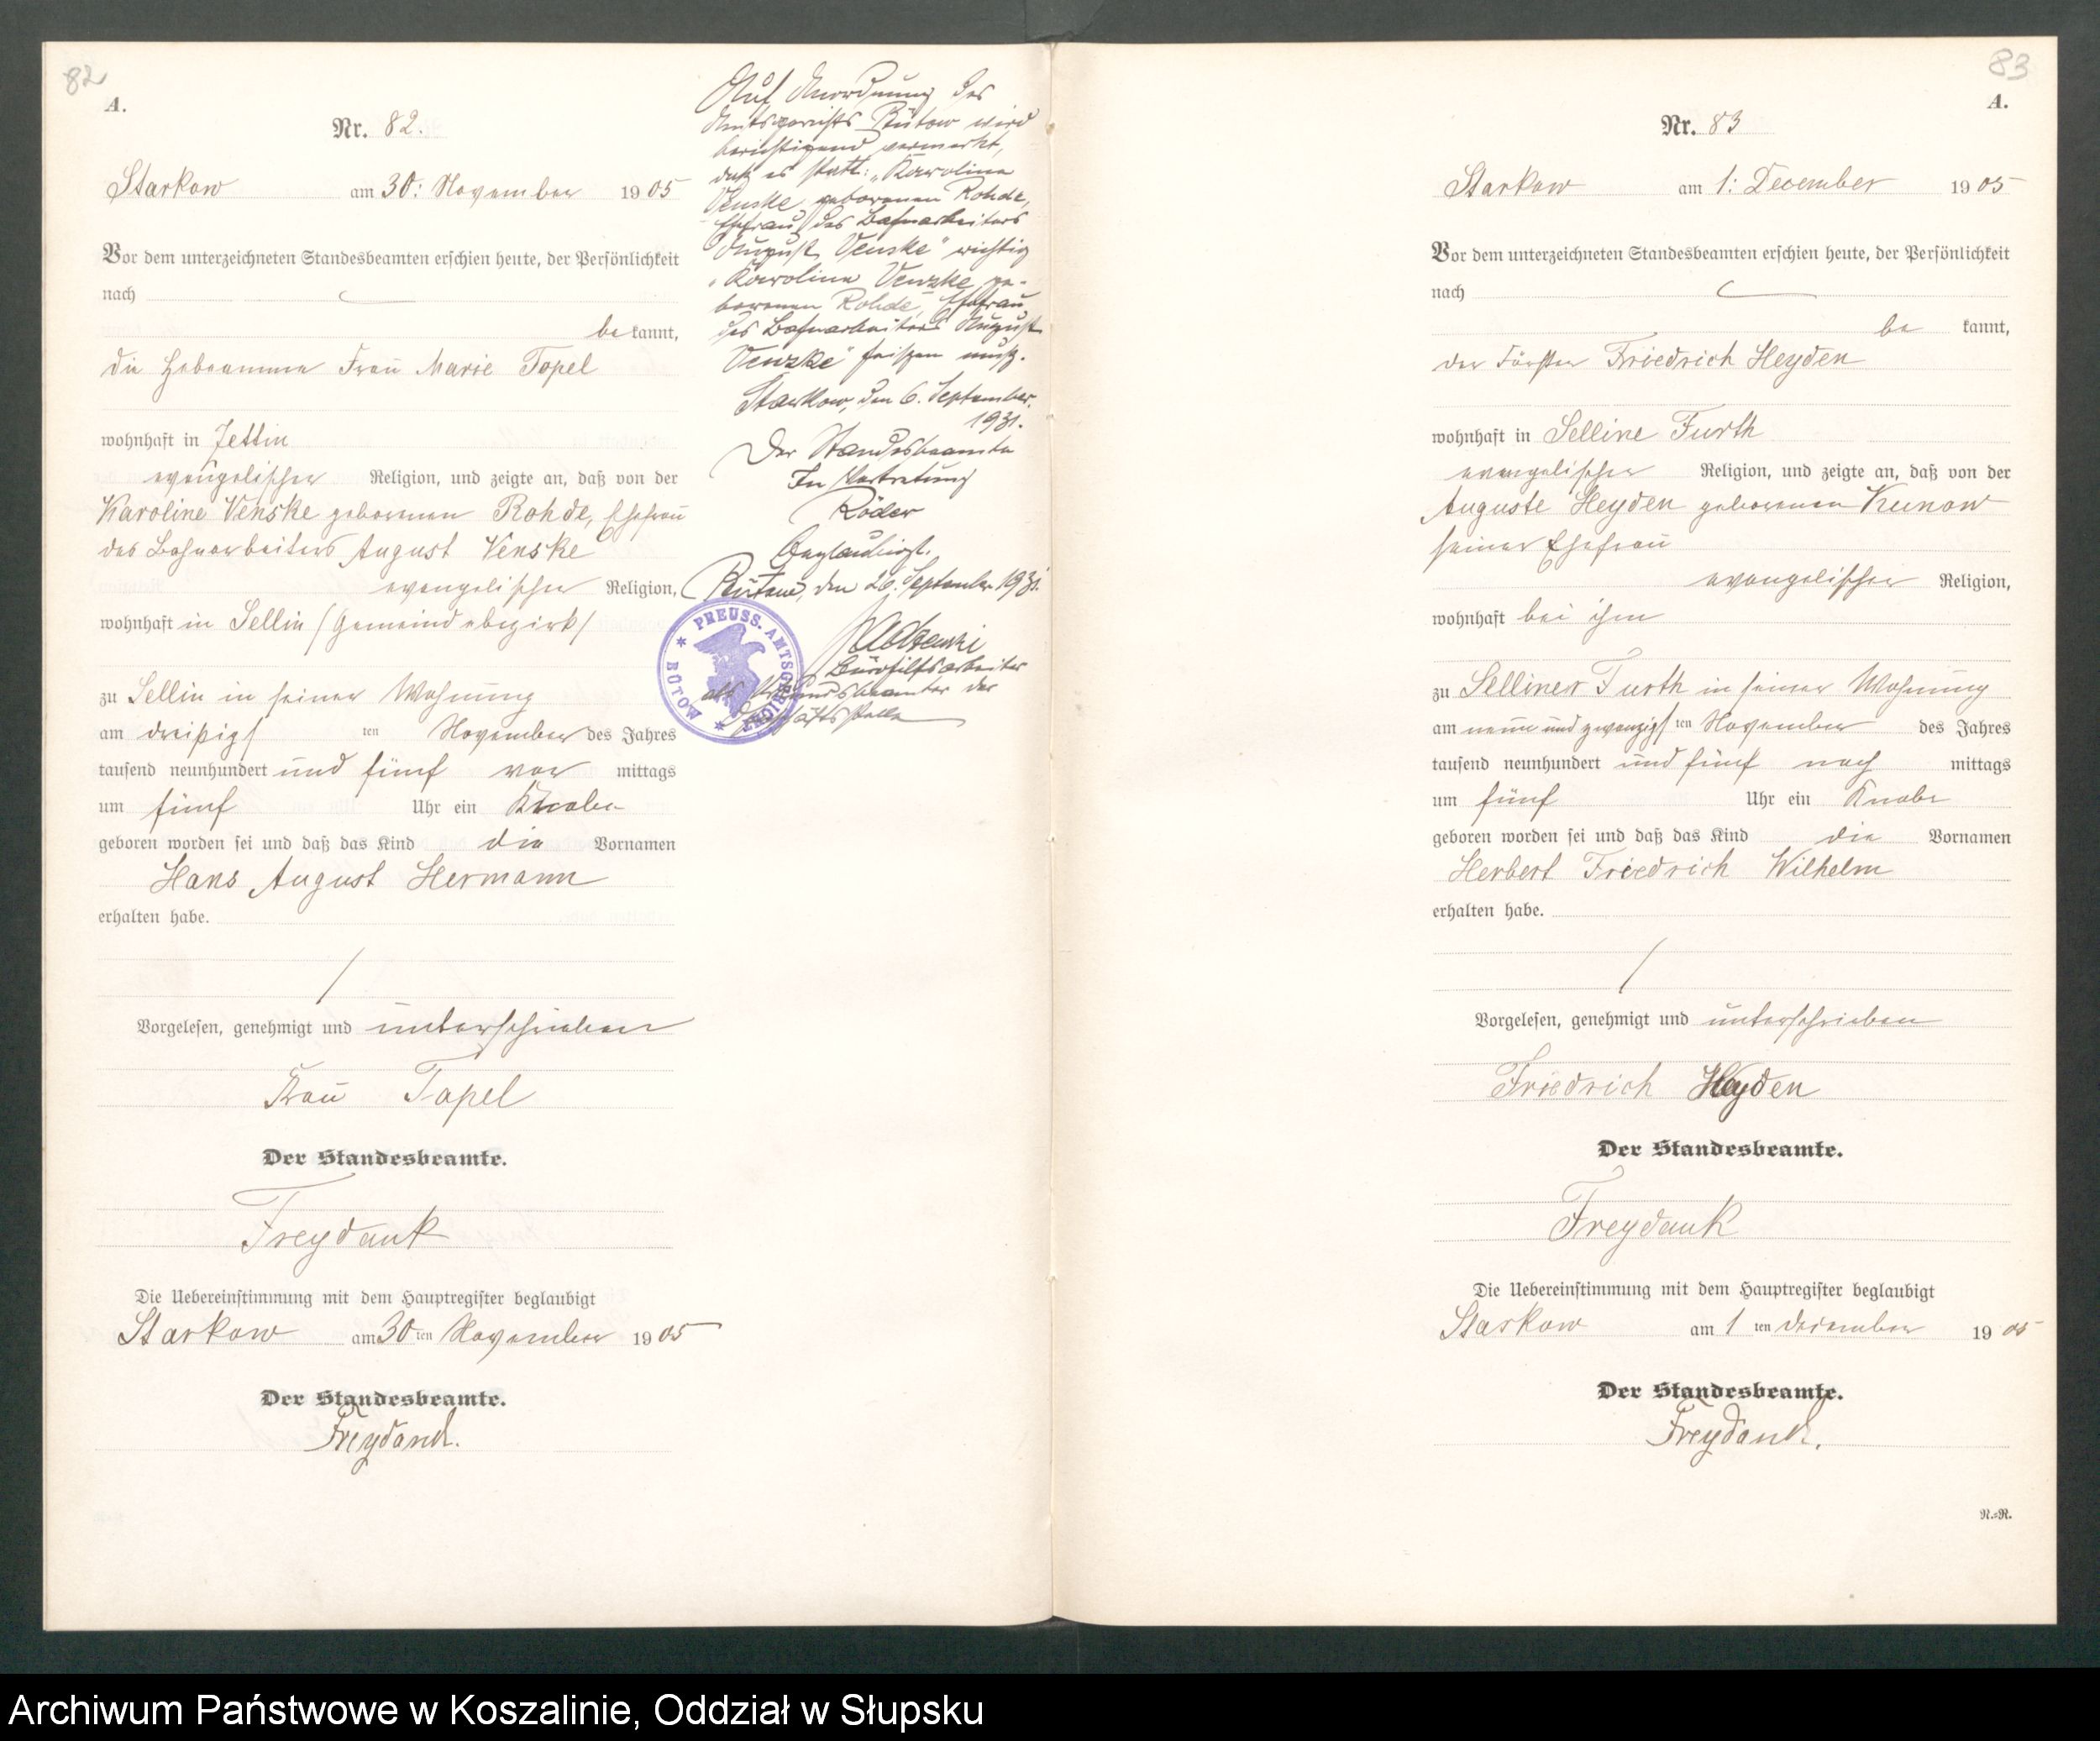 82
A.
Nr. 82.
Starkow am 30: November 1905
Vor dem unterzeichneten Standesbeamten erschien heute, der Persönlichkeit
nach
be kannt,
die Hebeamme Frau Marie Topel
wohnhaft in Jettin
evangelischer Religion, und zeigte an, daß von der
Karoline Venske geborenen Rohde, Ehefrau
des Bahnarbeiters August Venske
evangelischer Religion,
wohnhaft in Sellin /Gemeindebezirk/
zu Sellin in seiner Wohnung
am dreißigsten November des Jahres
tausend neunhundert und fünf vor mittags
um fünf Uhr ein Knabe
geboren worden sei und daß das Kind die Vornamen
Hans August Hermann
erhalten habe.
Vorgelesen, genehmigt und unterschrieben
Frau Topel
Der Standesbeamte.
Freydank
Die Uebereinstimmung mit dem Hauptregister beglaubigt
Starkow am 30ten November 1905
Der Standesbeamte.
Freydank.
Auf Anordnung des
Amtsgerichts Bütow wird
berichtigend vermerkt,
daß es statt: „Karoline
Venske geborenen Rohde,
Ehefrau des Bahnarbeiters
August Venske" richtig
„Karoline Venzke ge-
borenen Rohde, Ehefrau
des Bahnarbeiters August
Venzke" heißen muß.
Starkow, den 6. September
1931.
Der Standesbeamte
In Vertretung
Röder
Beglaubigt.
Bütow, den 26. September 1931.
Bürohilfsarbeiter
als Urkundsbeamter der
Geschäftsstelle
PREUSS. AMTSGERICHT
* BÜTOW *
83
A.
Nr. 83
Starkow am 1: December 1905
Vor dem unterzeichneten Standesbeamten erschien heute, der Persönlichkeit
nach
be kannt,
der Förster Friedrich Heyden
wohnhaft in Selline Furth
evangelischer Religion, und zeigte an, daß von der
Auguste Heyden geborenen Kunow
seiner Ehefrau
evangelischer Religion,
wohnhaft bei ihm
zu Selliner Furth in seiner Wohnung
am neun und zwanzigsten November des Jahres
tausend neunhundert und fünf nach mittags
um fünf Uhr ein Knabe
geboren worden sei und daß das Kind die Vornamen
Herbert Friedrich Wilhelm
erhalten habe.
Vorgelesen, genehmigt und unterschrieben
Friedrich Heyden
Der Standesbeamte.
Freydank
Die Uebereinstimmung mit dem Hauptregister beglaubigt
Starkow am 1 ten December 1905
Der Standesbeamte.
Freydank.
N.=R.
Archiwum Państwowe w Koszalinie, Oddział w Słupsku